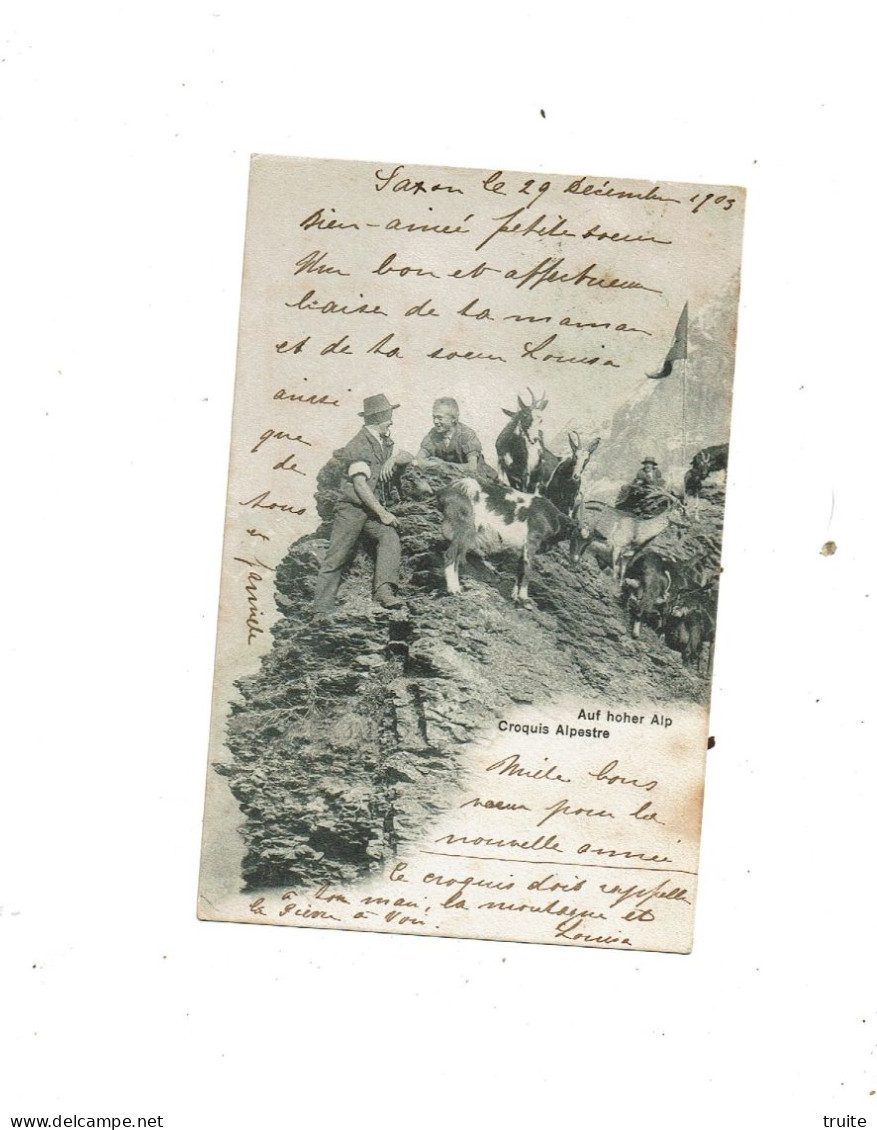 Saxon le 29 Décembre 1903
Bien-aimée petite soeur
Un bon et affectueux
baiser de ta maman
et de ta soeur Louisa
aussi
que
de
tous
et famille
Auf hoher Alp
Croquis Alpestre
Mille bons
voeux pour la
nouvelle année
Ce croquis doit rappeller
à ton mari, la montagne et
la Pierre à Voir.
Louisa
www.delcampe.net
truite